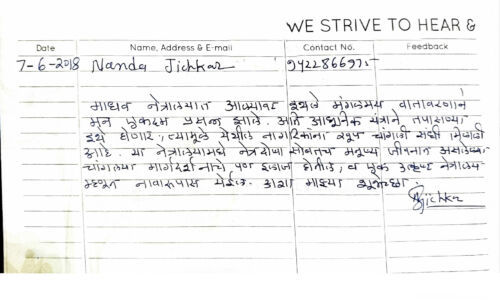 WE STRIVE TO HEAR &
Date Name, Address & E-mail Contact No. Feedback
7-6-2018 Nanda Jichkar 9422866975
माधव नेत्रालयात आल्यावर इथले मंगलमय वातावरणाने
मन एकदम प्रसन्न झाले. अति आधुनिक यंत्राने तपासण्या
इथे होणार, त्यामुळे येथील नागरिकांना खूप चांगली संधी मिळाली
आहे. या नेत्रालयामध्ये नेत्रदोषा सोबतच मनुष्य जीवनात असलेल्या
चांगल्या मार्गदर्शनाचे पण इलाज होतील, व एक उत्कृष्ट नेत्रालय
म्हणून नावारूपास येईल. अशा माझ्या शुभेच्छा.
Jichkar